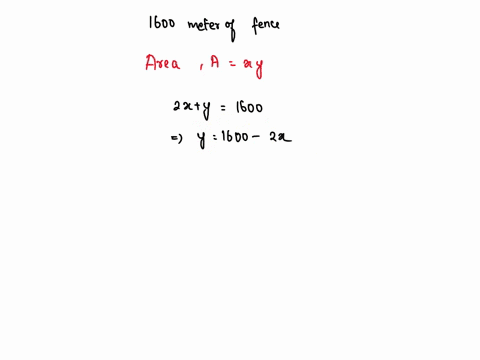 1600 meter of fence
Area , A = xy
2x+y = 1600
=) y = 1600 - 2x